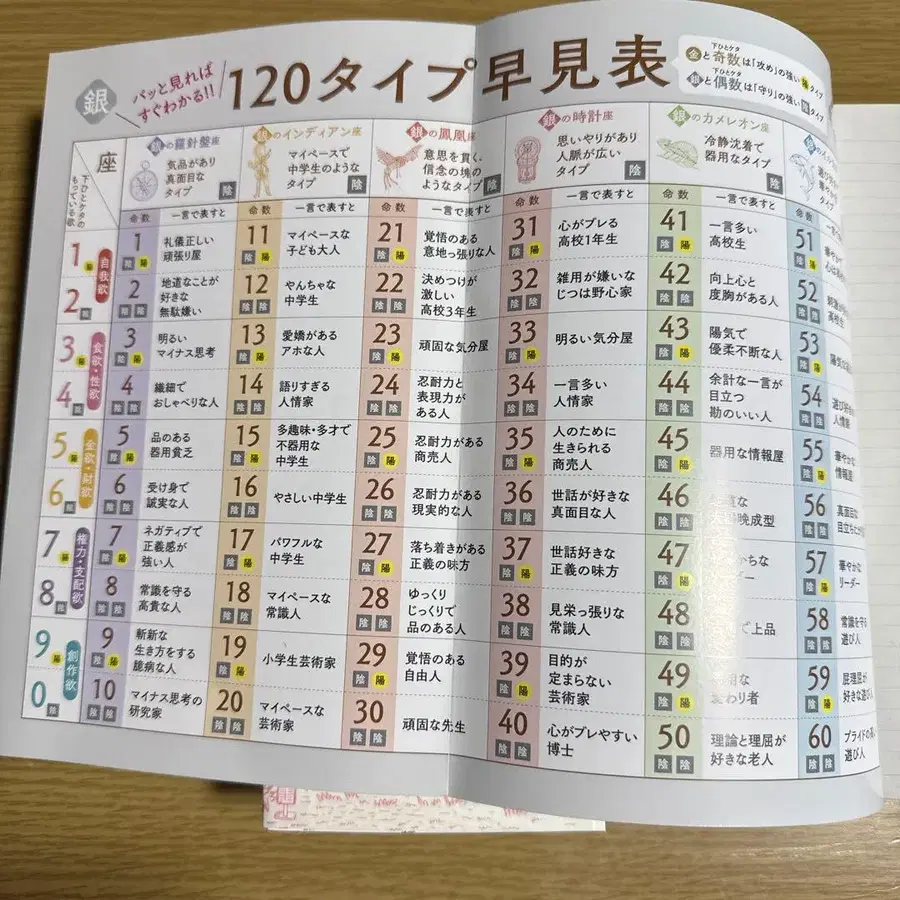 銀
パッと見れば
すぐわかる!!
120タイプ早見表
下ひとケタ
金と奇数は「攻め」の強い陽タイプ
下ひとケタ
銀と偶数は「守り」の強い陰タイプ
座
下ひとケタの
もっている欲
銀の羅針盤座
気品があり
真面目な
タイプ
陰
銀のインディアン座
マイペースで
中学生のような
タイプ
陰
銀の鳳凰座
意思を貫く、
信念の塊の
ようなタイプ
陰
銀の時計座
思いやりがあり
人脈が広い
タイプ
陰
銀のカメレオン座
冷静沈着で
器用なタイプ
陰
命数 一言で表すと
命数 一言で表すと
命数 一言で表すと
命数 一言で表すと
命数 一言で表すと
命数
1 陽
2 陰
自我欲
3 陽
4 陰
食欲・性欲
5 陽
6 陰
金欲・財欲
7 陽
8 陰
権力・支配欲
9 陽
0 陰
創作欲
1 陰陽
礼儀正しい
頑張り屋
2 陰陰
地道なことが
好きな
無駄嫌い
3 陰陽
明るい
マイナス思考
4 陰陰
繊細で
おしゃべりな人
5 陰陽
品のある
器用貧乏
6 陰陰
受け身で
誠実な人
7 陰陽
ネガティブで
正義感が
強い人
8 陰陰
常識を守る
高貴な人
9 陰陽
斬新な
生き方をする
臆病な人
10 陰陰
マイナス思考の
研究家
11 陰陽
マイペースな
子ども大人
12 陰陰
やんちゃな
中学生
13 陰陽
愛嬌がある
アホな人
14 陰陰
語りすぎる
人情家
15 陰陽
多趣味・多才で
不器用な
中学生
16 陰陰
やさしい中学生
17 陰陽
パワフルな
中学生
18 陰陰
マイペースな
常識人
19 陰陽
小学生芸術家
20 陰陰
マイペースな
芸術家
21 陰陽
覚悟のある
意地っ張りな人
22 陰陰
決めつけが
激しい
高校3年生
23 陰陽
頑固な気分屋
24 陰陰
忍耐力と
表現力が
ある人
25 陰陽
忍耐力がある
商売人
26 陰陰
忍耐力がある
現実的な人
27 陰陽
落ち着きがある
正義の味方
28 陰陰
ゆっくり
じっくりで
品のある人
29 陰陽
覚悟のある
自由人
30 陰陰
頑固な先生
31 陰陽
心がブレる
高校1年生
32 陰陰
雑用が嫌いな
じつは野心家
33 陰陽
明るい気分屋
34 陰陰
一言多い
人情家
35 陰陽
人のために
生きられる
商売人
36 陰陰
世話が好きな
真面目な人
37 陰陽
世話好きな
正義の味方
38 陰陰
見栄っ張りな
常識人
39 陰陽
目的が
定まらない
芸術家
40 陰陰
心がブレやすい
博士
41 陰陽
一言多い
高校生
42 陰陰
向上心と
度胸がある人
43 陰陽
陽気で
優柔不断な人
44 陰陰
余計な一言が
目立つ
勘のいい人
45 陰陽
器用な情報屋
46 陰陰
晩成型
47 陰陽
48 陰陰
で上品
49 陰陽
わり者
50 陰陰
理論と理屈が
好きな老人
51 陰陽
52 陰陰
高校生
53 陰陽
陽気な
54 陰陰
遊び
人情家
55 陰陽
華やかな
情報屋
56 陰陰
真面目な
57 陰陽
華やかな
リーダー
58 陰陰
常識を守る
遊び人
59 陰陽
屁理屈が
好きな遊び人
60 陰陰
プライドの高い
遊び人